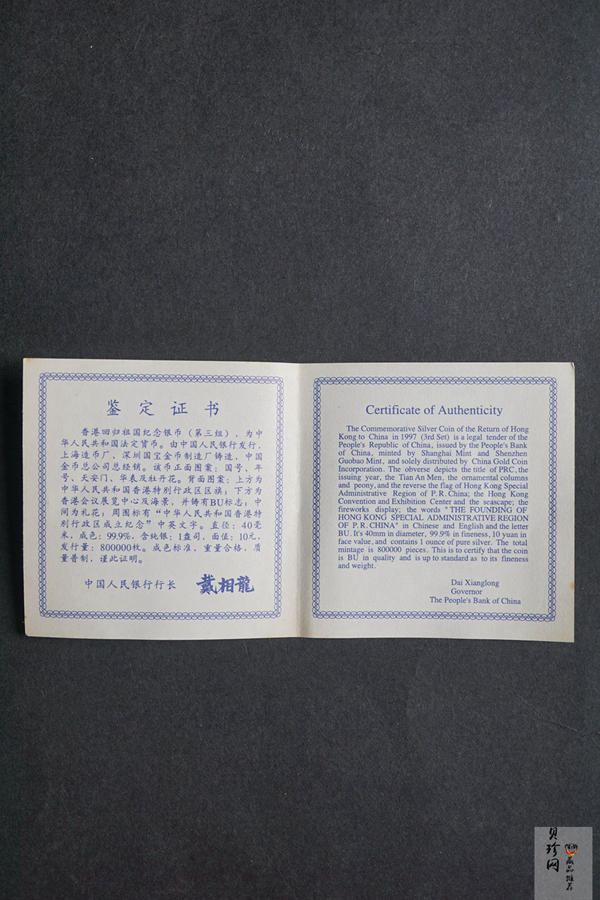 鉴定证书
香港回归祖国纪念银币（第三组），为中
华人民共和国法定货币。由中国人民银行发行，
上海造币厂、深圳国宝金币制造厂铸造，中国
金币总公司总经销。该币正面图案：国号、年
号、天安门、华表及牡丹花。背面图案：上方为
中华人民共和国香港特别行政区区旗；下方为
香港会议展览中心及海景，并铸有BU标志；中
间为礼花；周围标有“中华人民共和国香港特
别行政区成立纪念”中英文字。直径：40毫
米，成色：99.9%，含纯银：1盎司，面值：10元，
发行量：800000枚。成色标准，重量合格，质
量普制，谨此证明。
中国人民银行行长 戴相龍
Certificate of Authenticity
The Commemorative Silver Coin of the Return of Hong
Kong to China in 1997 (3rd Set) is a legal tender of the
People's Republic of China, issued by the People's Bank
of China, minted by Shanghai Mint and Shenzhen
Guobao Mint, and solely distributed by China Gold Coin
Incorporation. The obverse depicts the title of PRC, the
issuing year, the Tian An Men, the ornamental columns
and peony, and the reverse the flag of Hong Kong Special
Administrative Region of P.R. China; the Hong Kong
Convention and Exhibition Center and the seascape; the
fireworks display; the words "THE FOUNDING OF
HONG KONG SPECIAL ADMINISTRATIVE REGION
OF P.R. CHINA" in Chinese and English and the letter
BU. It's 40mm in diameter, 99.9% in fineness, 10 yuan in
face value, and contains 1 ounce of pure silver. The total
mintage is 800000 pieces. This is to certify that the coin
is BU in quality and is up to standard as to its fineness
and weight.
Dai Xianglong
Governor
The People's Bank of China
贝珍网
藏品推荐